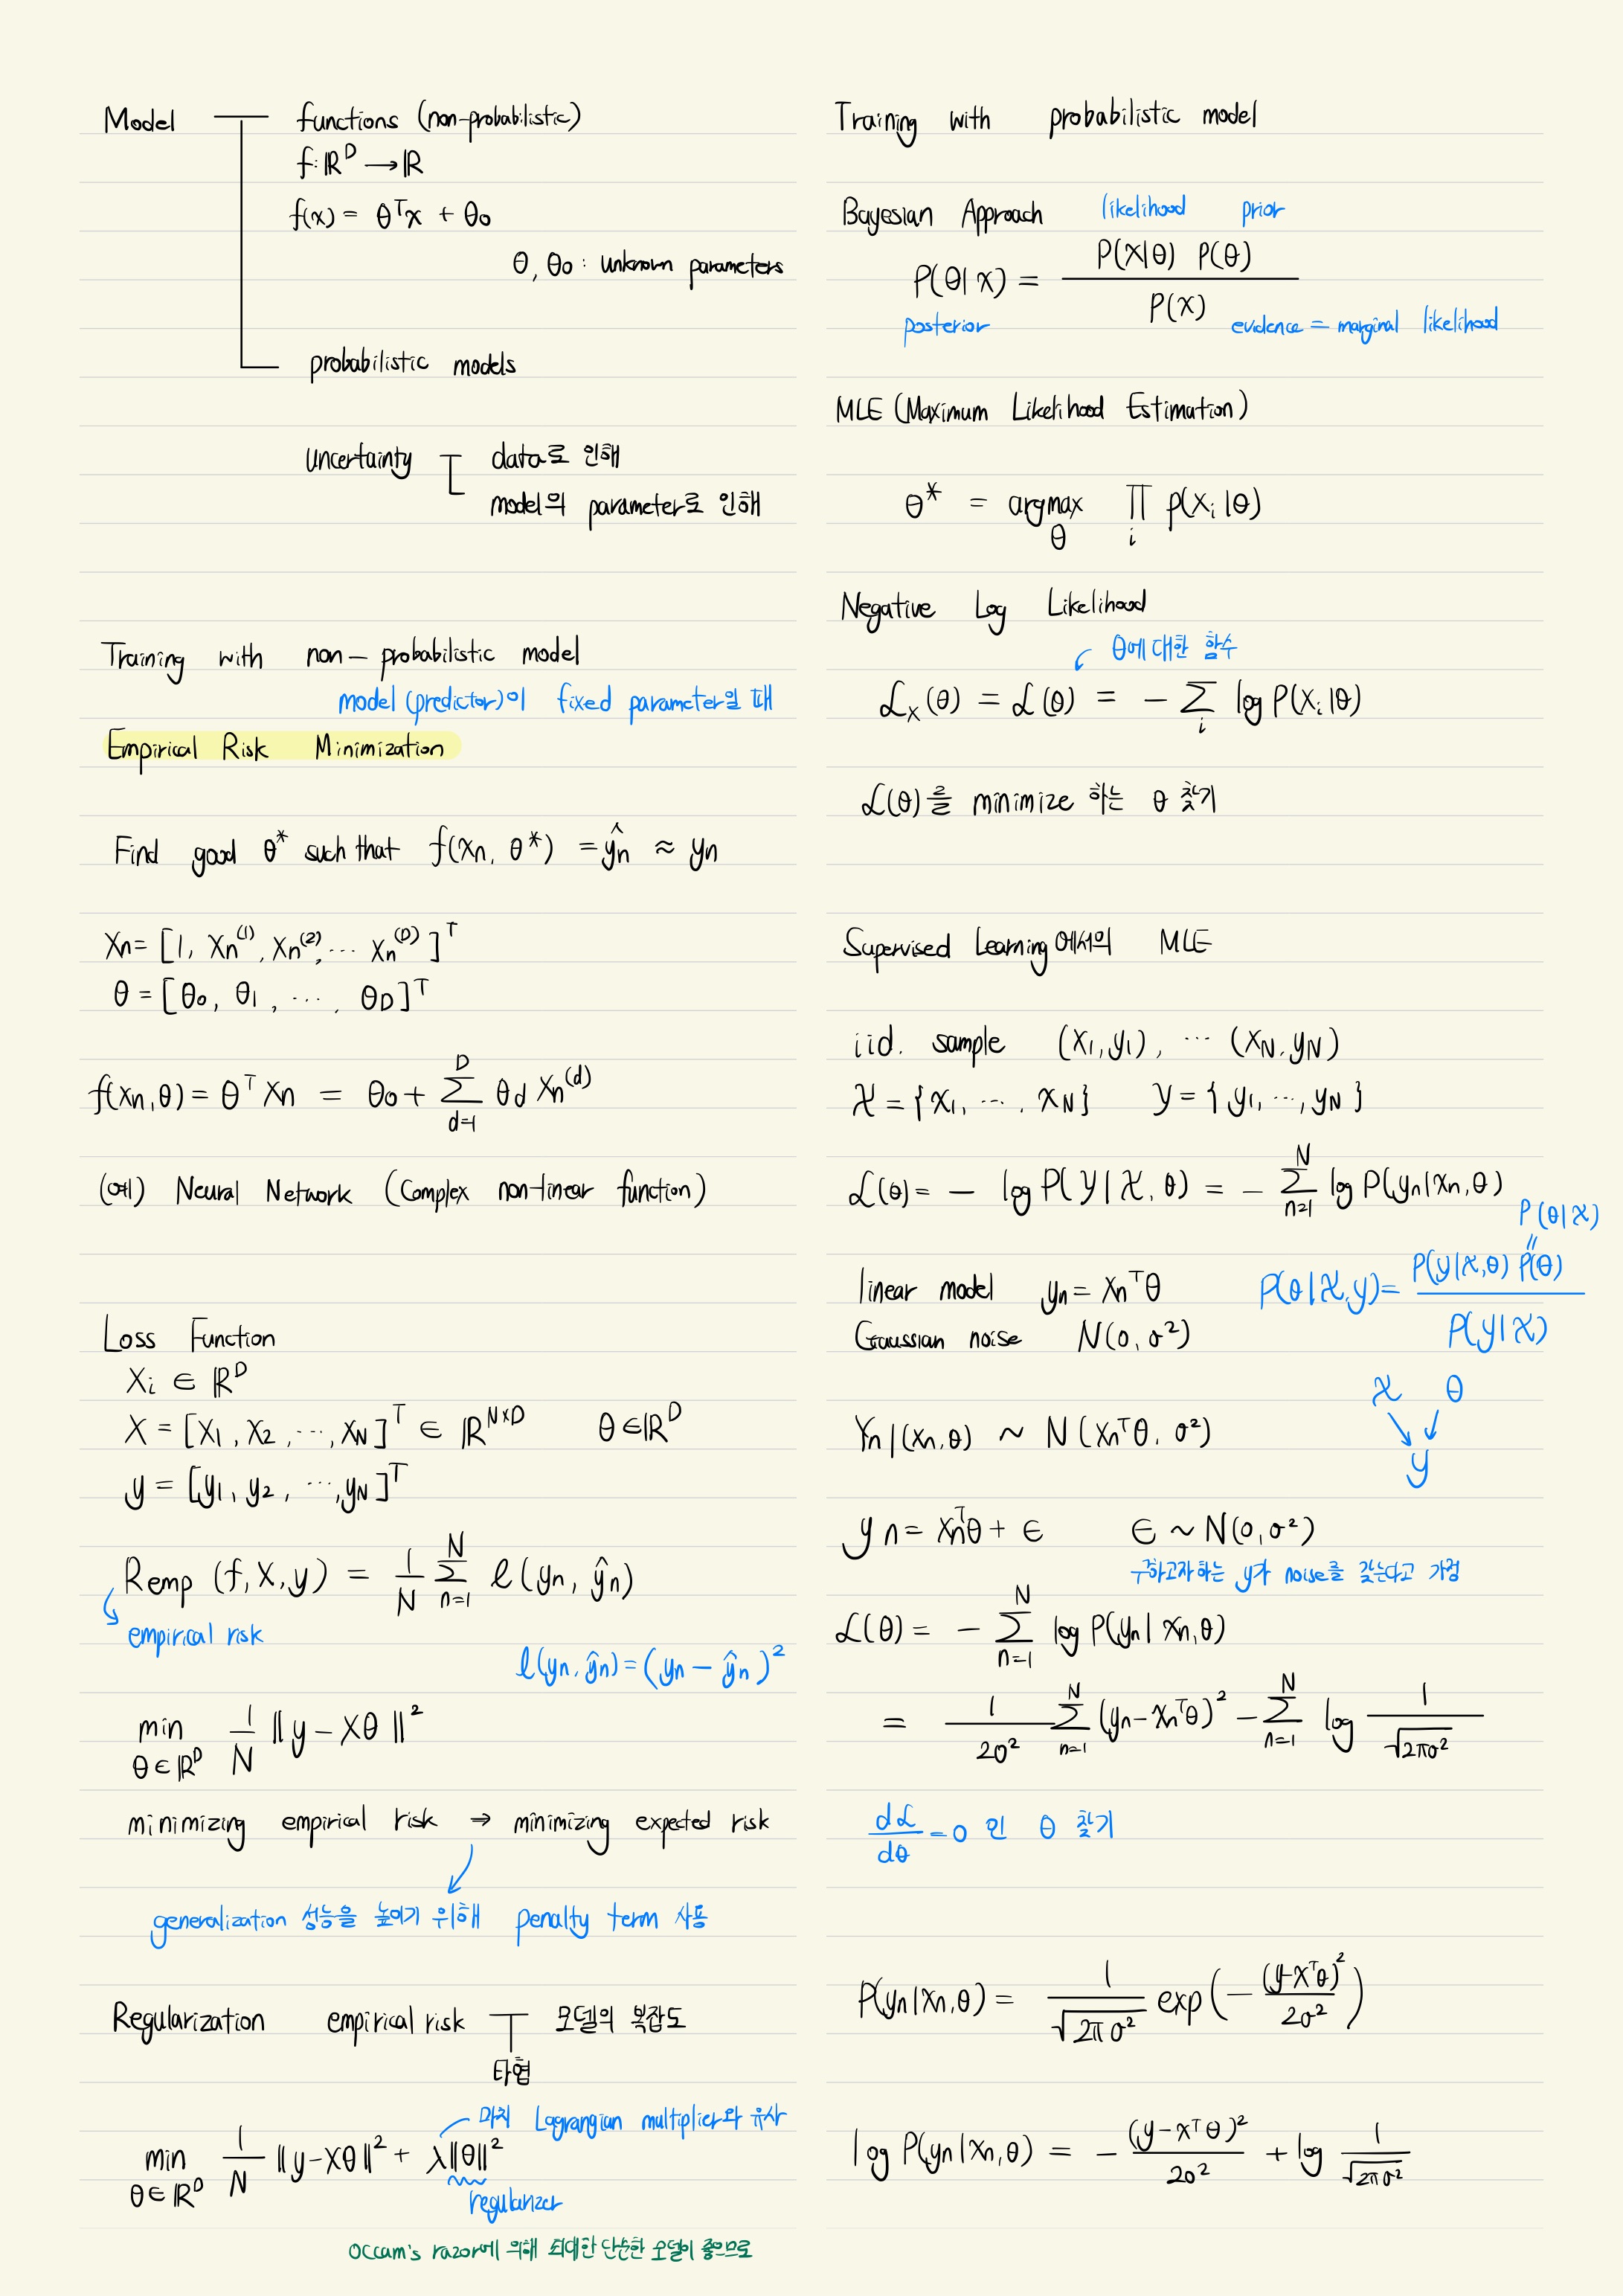 Model
functions (non-probabilistic)
f: ℝᴰ → ℝ
f(x) = θᵀx + θ₀
θ, θ₀ : unknown parameters
probabilistic models
uncertainty
data로 인해
model의 parameter로 인해
Training with non-probabilistic model
model (predictor)이 fixed parameter일 때
Empirical Risk Minimization
Find good θ* such that f(xn, θ*) = ŷn ≈ yn
xn = [1, xn⁽¹⁾, xn⁽²⁾, ⋯ xn⁽ᴰ⁾]ᵀ
θ = [θ₀, θ₁, ⋯, θD]ᵀ
f(xn, θ) = θᵀxn = θ₀ + Σ_{d=1}^{D} θd xn⁽ᵈ⁾
(예) Neural Network (Complex non-linear function)
Loss Function
xi ∈ ℝᴰ
X = [x₁, x₂, ⋯, xN]ᵀ ∈ ℝᴺˣᴰ θ ∈ ℝᴰ
y = [y₁, y₂, ⋯, yN]ᵀ
Remp (f, X, y) = 1/N Σ_{n=1}^{N} ℓ(yn, ŷn)
empirical risk
ℓ(yn, ŷn) = (yn − ŷn)²
min_{θ∈ℝᴰ} 1/N ‖y − Xθ‖²
minimizing empirical risk ⇒ minimizing expected risk
generalization 성능을 높이기 위해 penalty term 사용
Regularization empirical risk 모델의 복잡도
타협
마치 Lagrangian multiplier와 유사
min_{θ∈ℝᴰ} 1/N ‖y − Xθ‖² + λ‖θ‖²
regularizer
Occam's razor에 의해 최대한 단순한 모델이 좋으므로
Training with probabilistic model
Bayesian Approach
likelihood prior
P(θ|x) = P(x|θ) P(θ) / P(x)
posterior
evidence = marginal likelihood
MLE (Maximum Likelihood Estimation)
θ* = argmax_θ ∏_i p(xi|θ)
Negative Log Likelihood
θ에 대한 함수
ℒx(θ) = ℒ(θ) = − Σ_i log P(xi|θ)
ℒ(θ)를 minimize 하는 θ 찾기
Supervised Learning에서의 MLE
iid. sample (x₁, y₁), ⋯ (xN, yN)
𝒳 = {x₁, ⋯, xN} 𝒴 = {y₁, ⋯, yN}
ℒ(θ) = − log P(𝒴|𝒳, θ) = − Σ_{n=1}^{N} log P(yn|xn, θ)
P(θ|𝒳)
=
linear model yn = xnᵀθ
P(θ|𝒳,𝒴) = P(𝒴|𝒳,θ) P(θ) / P(𝒴|𝒳)
Gaussian noise N(0, σ²)
𝒳 θ
Yn|(xn, θ) ~ N(xnᵀθ, σ²)
y
yn = xnᵀθ + ε ε ~ N(0, σ²)
구하고자하는 y가 noise를 갖는다고 가정
ℒ(θ) = − Σ_{n=1}^{N} log P(yn|xn, θ)
= 1/2σ² Σ_{n=1}^{N} (yn − xnᵀθ)² − Σ_{n=1}^{N} log 1/√2πσ²
dℒ/dθ = 0 인 θ 찾기
P(yn|xn, θ) = 1/√2πσ² exp(− (y−xᵀθ)²/2σ²)
log P(yn|xn, θ) = − (y−xᵀθ)²/2σ² + log 1/√2πσ²